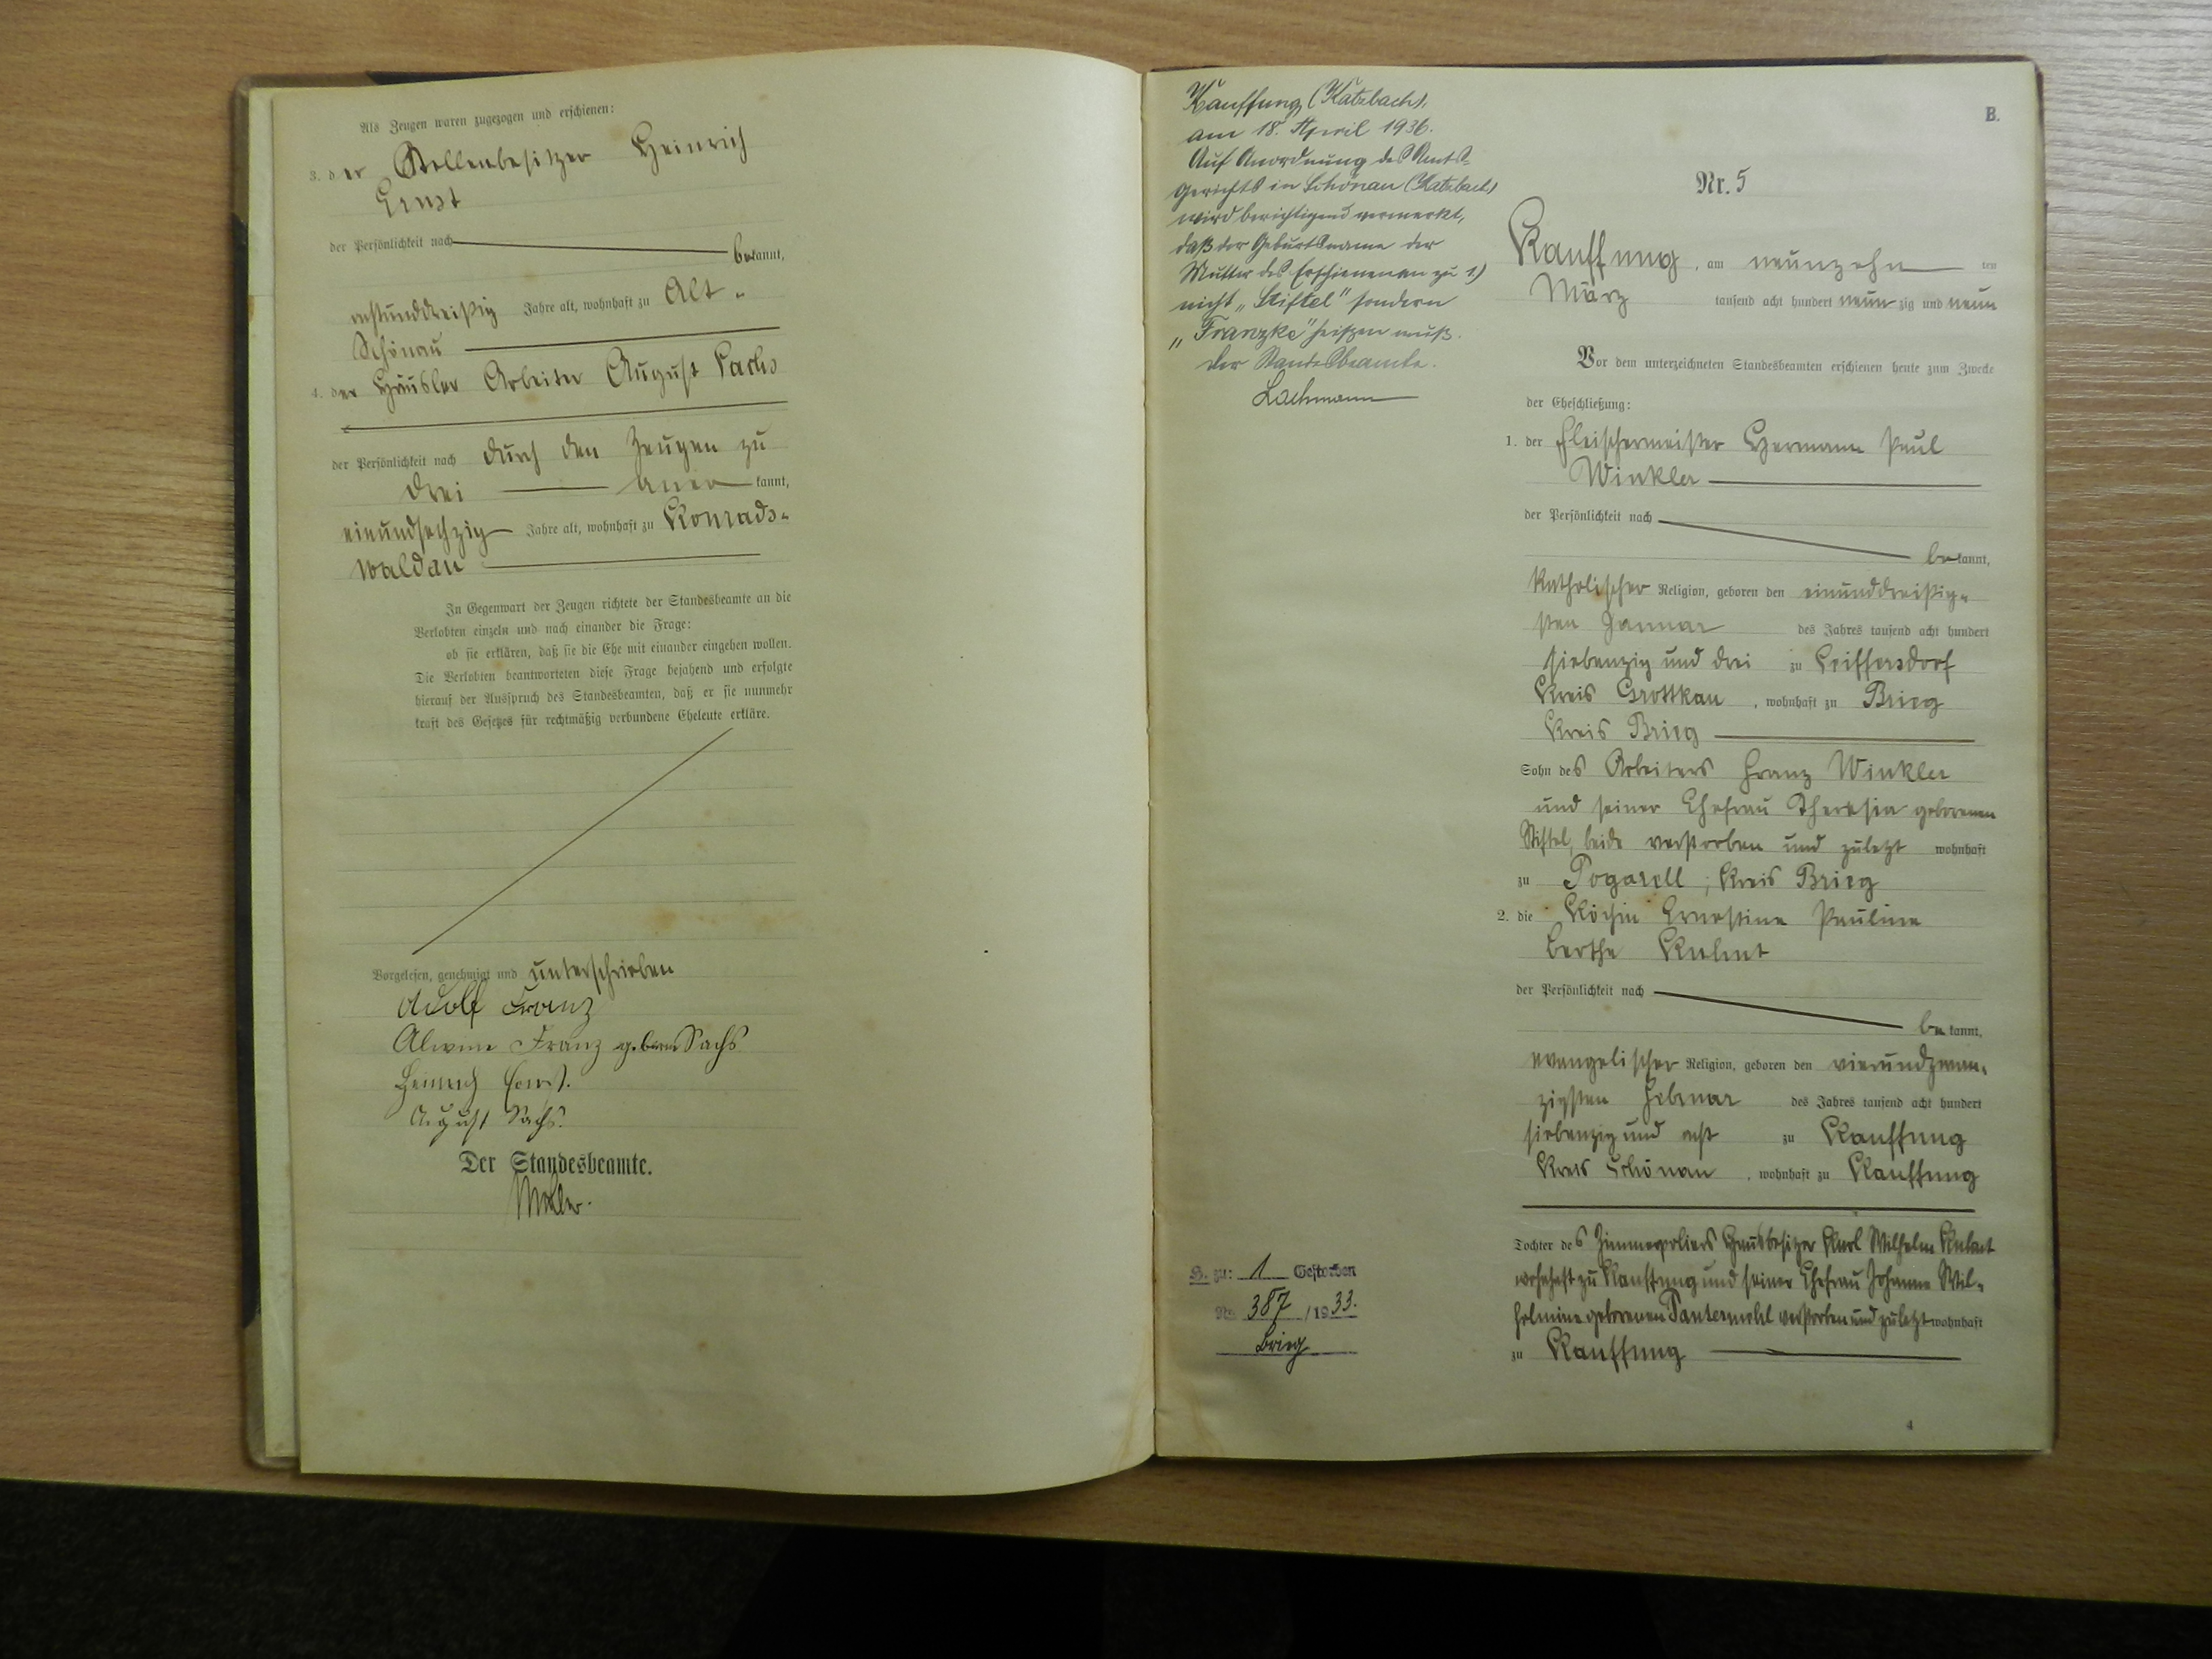 Als Zeugen waren zugezogen und erschienen:
3. der Stellenbesitzer Heinrich
Ernst
der Persönlichkeit nach bekannt,
achtunddreißig Jahre alt, wohnhaft zu Alt-
Schönau
4. der Häusler Arbeiter August Sachs
der Persönlichkeit nach durch den Zeugen zu
drei anerkannt,
einundsechzig Jahre alt, wohnhaft zu Konrads-
waldau
In Gegenwart der Zeugen richtete der Standesbeamte an die
Verlobten einzeln und nach einander die Frage:
ob sie erklären, daß sie die Ehe mit einander eingehen wollen.
Die Verlobten beantworteten diese Frage bejahend und erfolgte
hierauf der Ausspruch des Standesbeamten, daß er sie nunmehr
kraft des Gesetzes für rechtmäßig verbundene Eheleute erkläre.
Vorgelesen, genehmigt und unterschrieben
Adolf Franz
Alwine Franz geborne Sachs
Heinrich Ernst.
August Sachs.
Der Standesbeamte.
Kauffung (Katzbach),
am 18. April 1936.
Auf Anordnung des Amts-
gerichts in Schönau (Katzbach)
wird berichtigend vermerkt,
daß der Geburtsname der
Mutter des Erschienenen zu 1)
nicht „Stiftel" sondern
„Franzke" heißen muß.
Der Standesbeamte.
Lachmann
H. zu: 1 Gestorben
Nr. 387 /1933.
Brieg
B.
Nr. 5
Kauffung, am neunzehn ten
März tausend acht hundert neunzig und neun
Vor dem unterzeichneten Standesbeamten erschienen heute zum Zwecke
der Eheschließung:
1. der Fleischermeister Hermann Paul
Winkler
der Persönlichkeit nach
bekannt,
katholischer Religion, geboren den einunddreißig-
sten Januar des Jahres tausend acht hundert
siebenzig und drei zu Seiffersdorf
Kreis Grottkau, wohnhaft zu Brieg
Kreis Brieg
Sohn des Arbeiters Franz Winkler
und seiner Ehefrau Theresia geborenen
Stiftel, beide verstorben und zuletzt wohnhaft
zu Pogarell, Kreis Brieg
2. die Köchin Ernestine Pauline
Berthe
der Persönlichkeit nach
bekannt,
evangelischer Religion, geboren den vierundzwan-
zigsten Februar des Jahres tausend acht hundert
siebenzig und acht zu Kauffung
Kreis Schönau, wohnhaft zu Kauffung
Tochter des Zimmerpoliers Hausbesitzer Karl Wilhelm
wohnhaft zu Kauffung und seiner Ehefrau Johanne Wil-
helmine geborenen verstorben und zuletzt wohnhaft
zu Kauffung
4